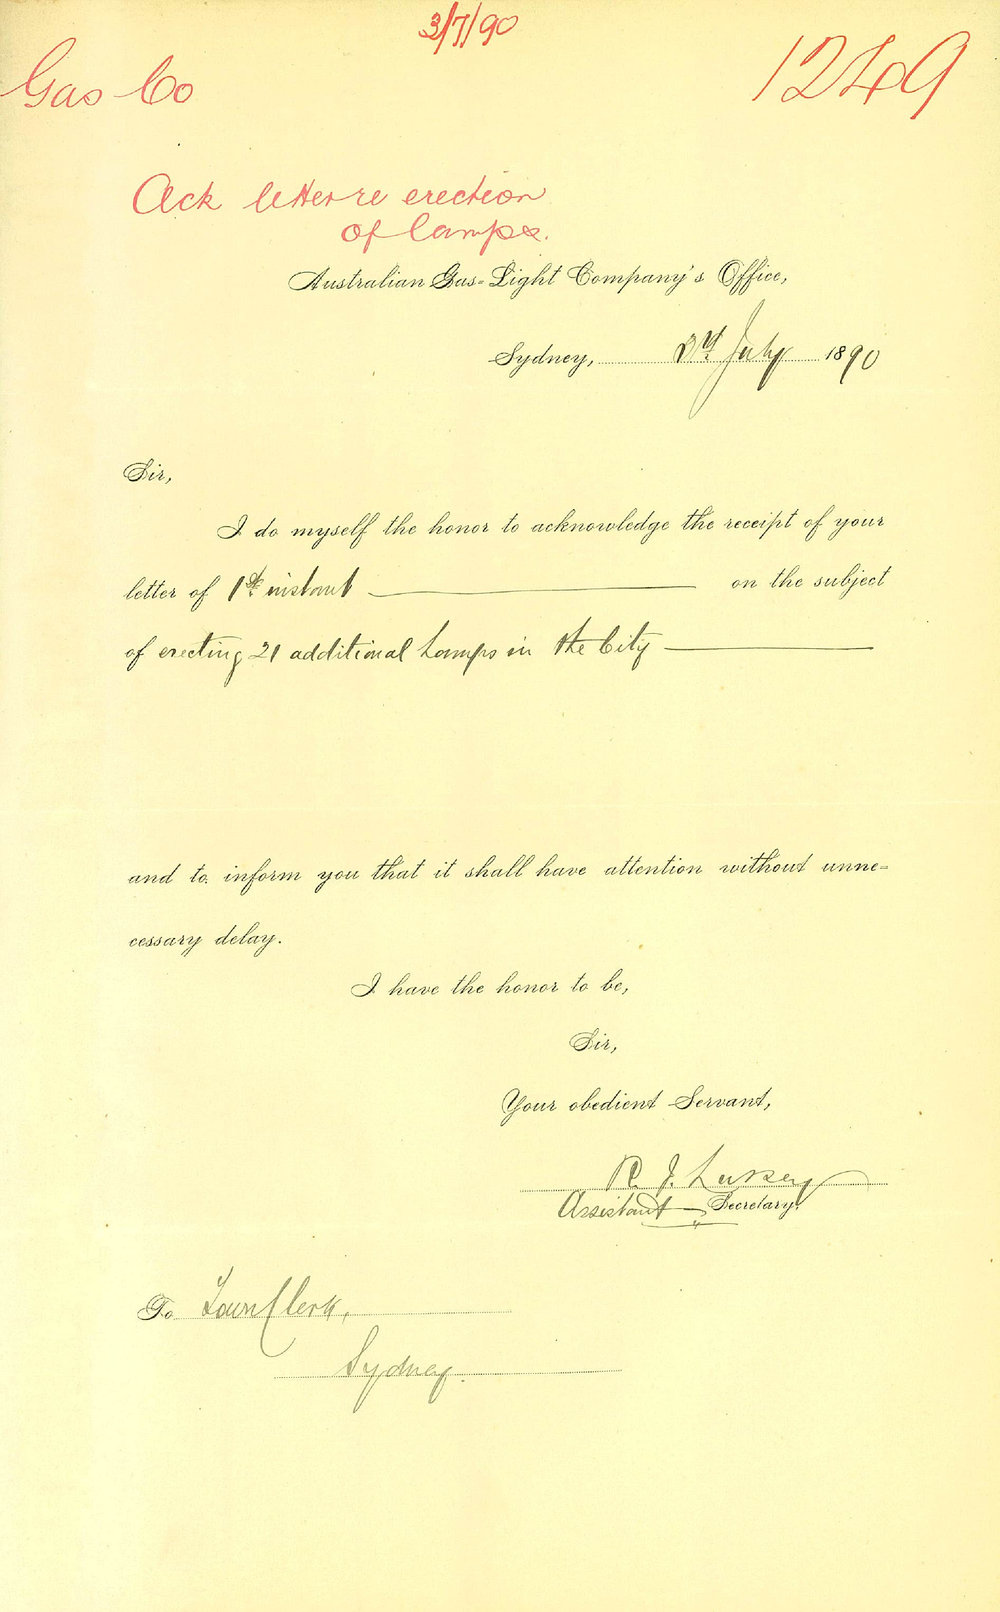 3/7/90
Gas Co
1249
Ack letter re erection
of lamps.
Australian Gas-Light Company's Office,
Sydney, 3rd July 1890
Sir,
I do myself the honor to acknowledge the receipt of your
letter of 1st instant on the subject
of erecting 21 additional Lamps in the City
and to inform you that it shall have attention without unne=
cessary delay.
I have the honor to be,
Sir,
Your obedient Servant,
R. J.
Assistant Secretary.
To Town Clerk,
Sydney.